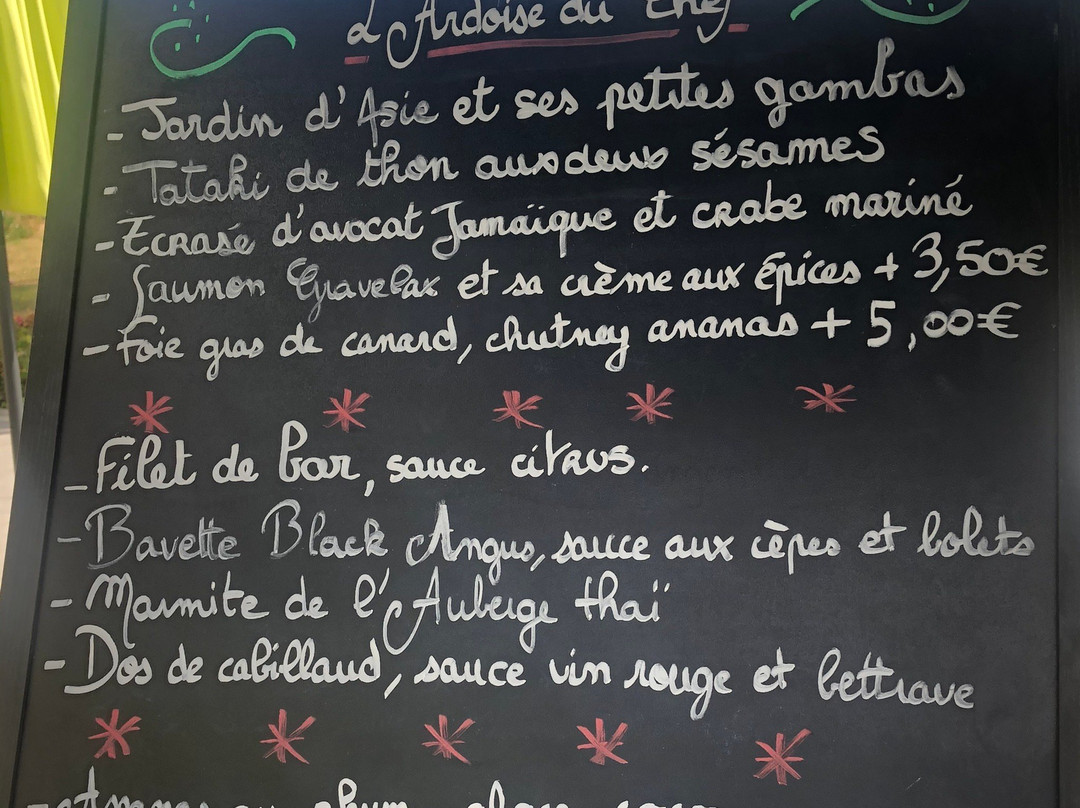 L'Ardoise du Chef
- Jardin d'Asie et ses petites gambas
- Tataki de thon aux deux sésames
- Ecrasé d'avocat Jamaïque et crabe mariné
- Saumon Gravelax et sa crème aux épices + 3,50€
- Foie gras de canard, chutney ananas + 5,00€
- Filet de bar, sauce citrus.
- Bavette Black Angus, sauce aux cèpes et bolets
- Marmite de l'Auberge thaï
- Dos de cabillaud, sauce vin rouge et bettrave